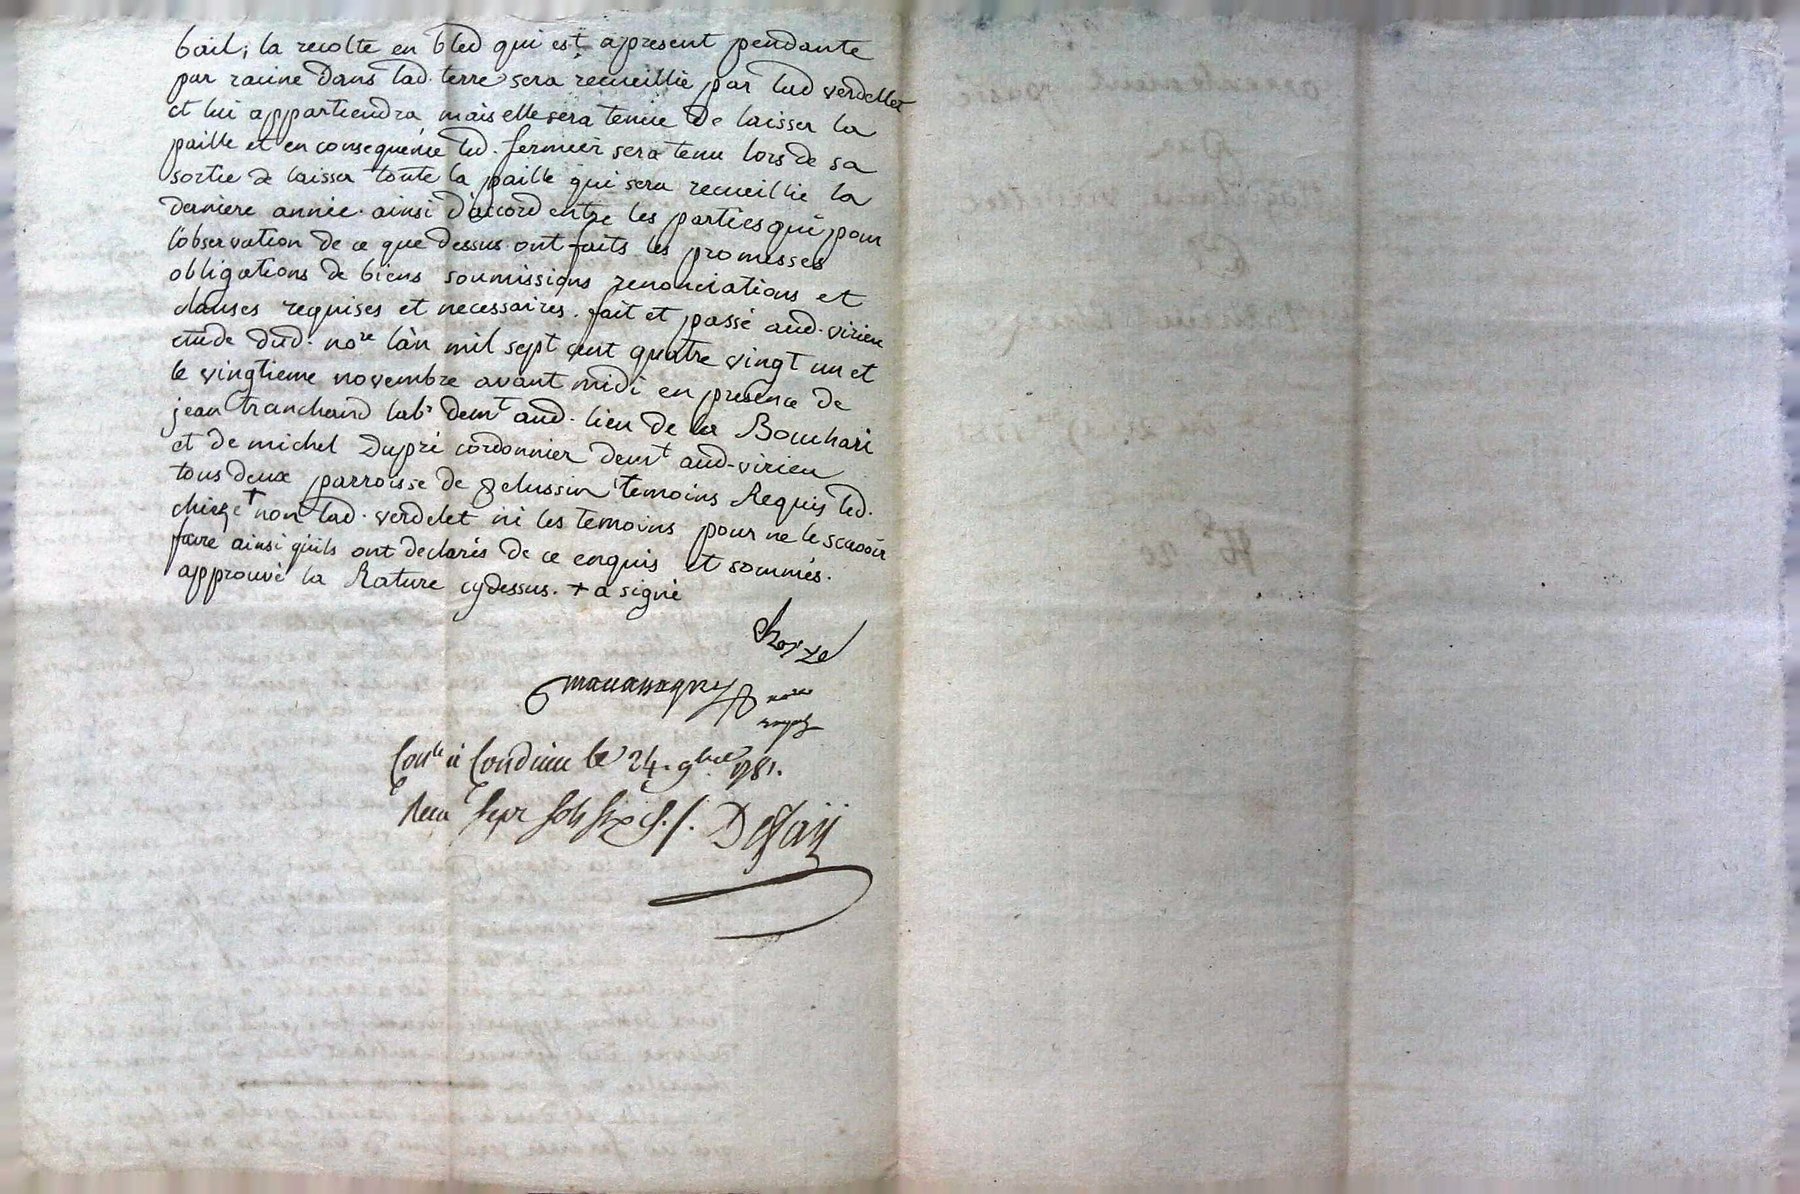 bail; la recolte en bled qui est apresent pendante
par racine dans lad. terre sera recueillie par lad verdellet
et lui appartiendra mais elle sera tenue de laisser la
paille et en consequence led. fermier sera tenu lors de sa
sortie de laisser toute la paille qui sera recueillie la
derniere année. ainsi d'accord entre les parties qui pour
l'observation de ce que dessus ont faits les promesses
obligations de biens soumissions renonciations et
clauses requises et necessaires. fait et passé aud. virieu
etude dud. nore l'an mil sept cent quatre vingt un et
le vingtieme novembre avant midi en presence de
jean tranchand labr demt aud. lieu de la Bouchari
et de michel Dupré cordonnier demt aud. virieu
tous deux parroisse de pelussin temoins Requis led.
chieze + non lad. verdelet ni les temoins pour ne le scavoir
faire ainsi quils ont declarés de ce enquis et sommés.
approuvé la Rature cydessus. + a signé
nore
royal
Conle à Condrieu le 24. 9bre 1781.
Recu sept sols six d. /.